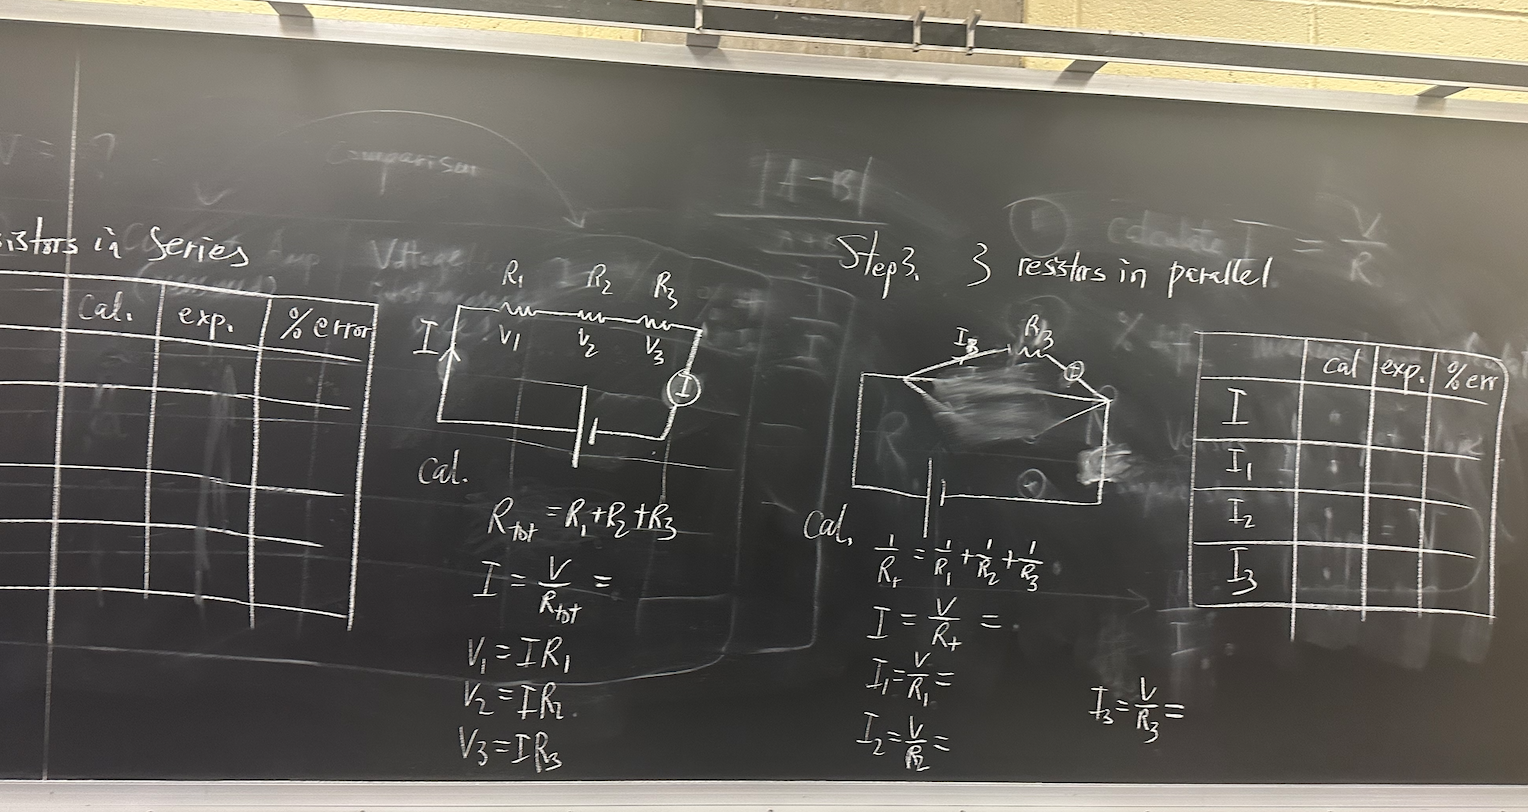 V = ?
Comparison
|A-B|
Calculate I = V/R
Voltage
resistors in Series
Cal. exp. % error
R₁ R₂ R₃
I V₁ V₂ V₃
I
Cal.
R_tot = R₁+R₂+R₃
I = V/R_tot =
V₁ = IR₁
V₂ = IR₂
V₃ = IR₃
Step3. 3 resistors in parallel
I₃ R₃
Cal.
1/R_t = 1/R₁ + 1/R₂ + 1/R₃
I = V/R_t =
I₁ = V/R₁ =
I₂ = V/R₂ =
I₃ = V/R₃ =
cal exp. % err
I
I₁
I₂
I₃